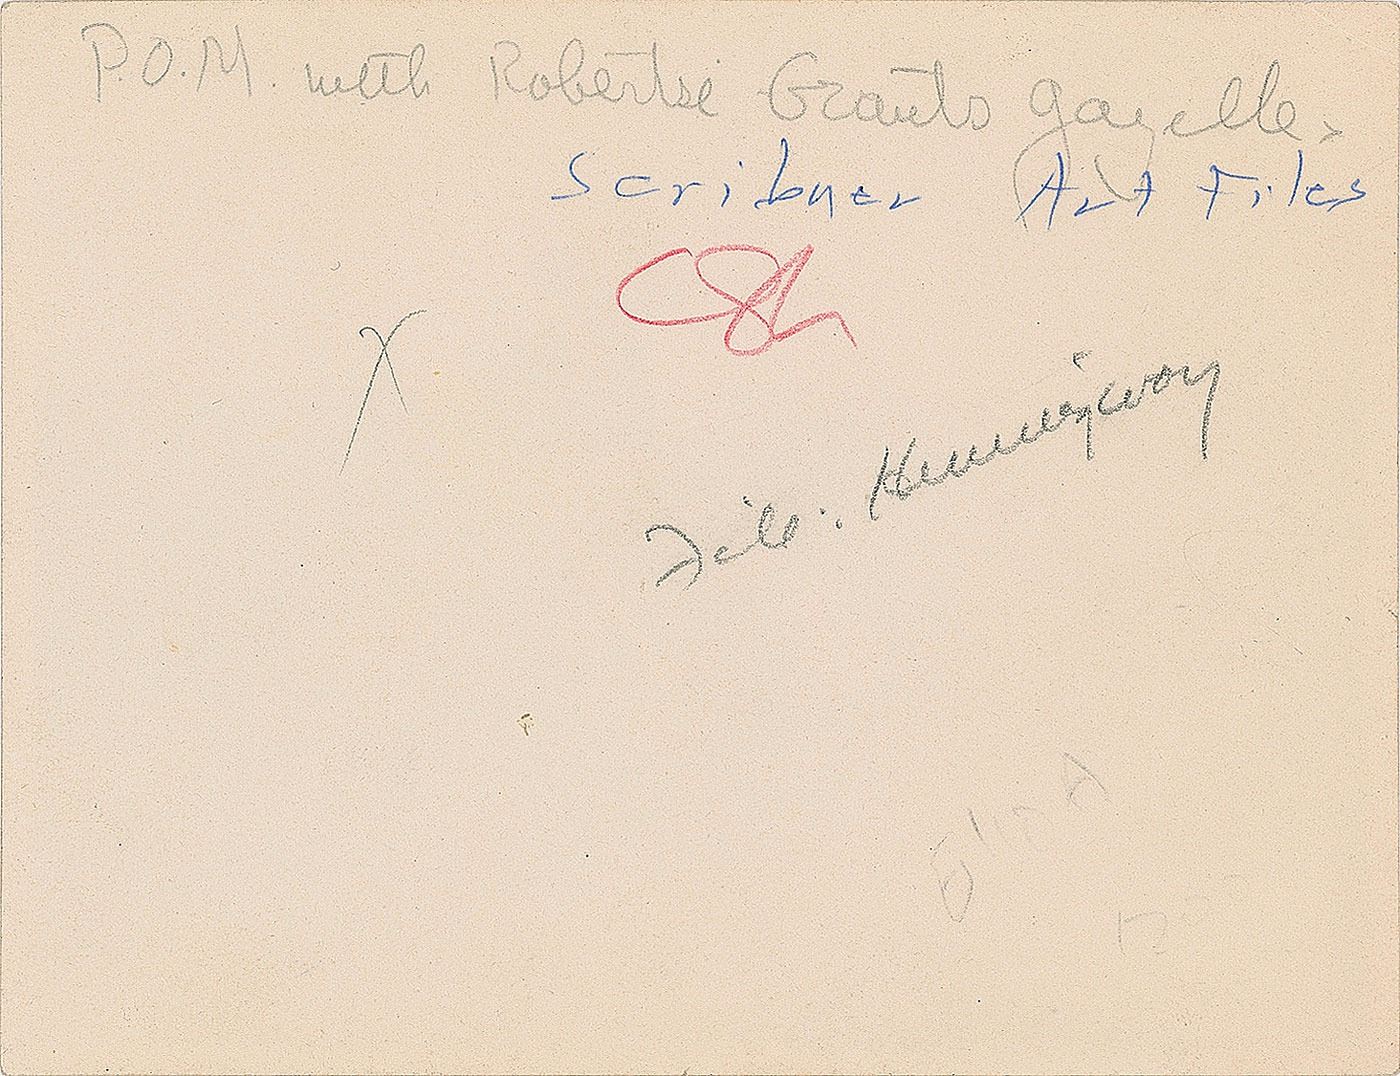 P.O.M. with Robertsi Grants gazelle,
Scribner Art Files
X
File: Hemingway